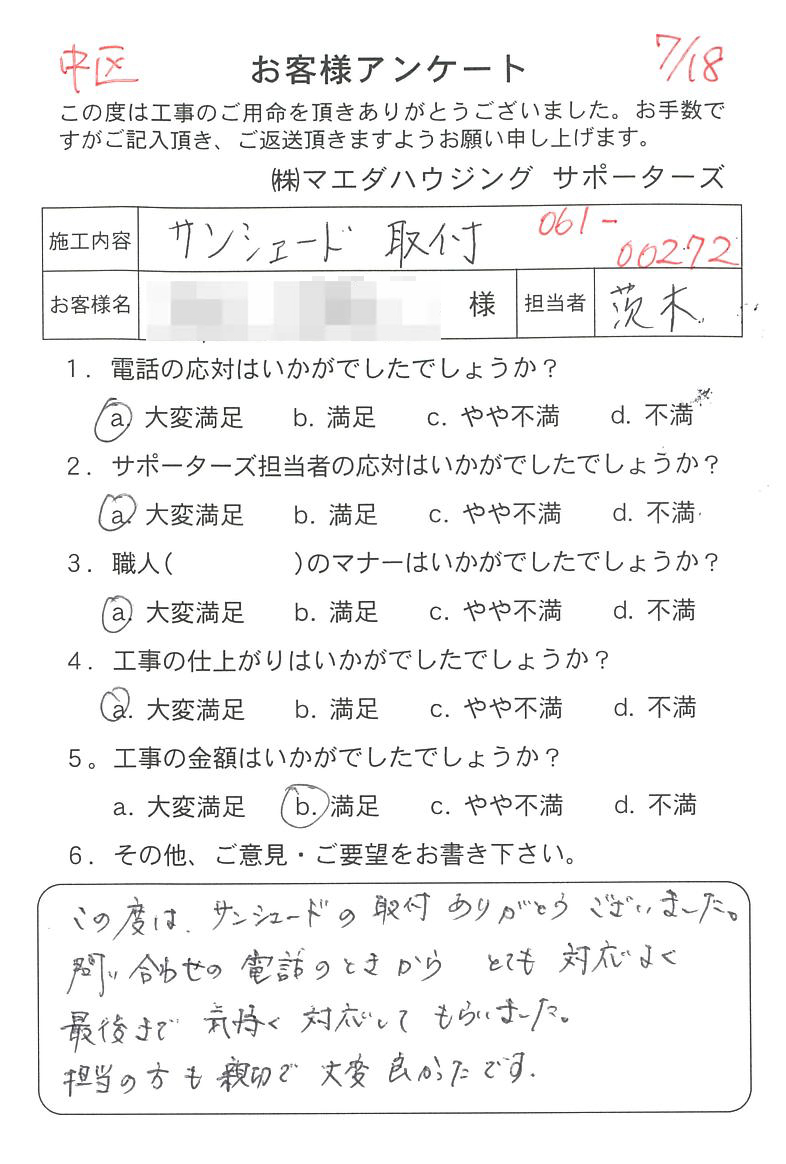 中区
お客様アンケート
7/18
この度は工事のご用命を頂きありがとうございました。お手数で
すがご記入頂き、ご返送頂きますようお願い申し上げます。
㈱マエダハウジング サポーターズ
施工内容 サンシェード 取付 061-00272
お客様名 様 担当者 茨木
1. 電話の応対はいかがでしたでしょうか？
a. 大変満足 b. 満足 c. やや不満 d. 不満
2. サポーターズ担当者の応対はいかがでしたでしょうか？
a. 大変満足 b. 満足 c. やや不満 d. 不満
3. 職人( )のマナーはいかがでしたでしょうか？
a. 大変満足 b. 満足 c. やや不満 d. 不満
4. 工事の仕上がりはいかがでしたでしょうか？
a. 大変満足 b. 満足 c. やや不満 d. 不満
5。工事の金額はいかがでしたでしょうか？
a. 大変満足 b. 満足 c. やや不満 d. 不満
6. その他、ご意見・ご要望をお書き下さい。
この度は、サンシェードの取付ありがとうございました。
問い合わせの電話のときからとても対応よく
最後まで気持く対応してもらいました。
担当の方も親切で大変良かったです.